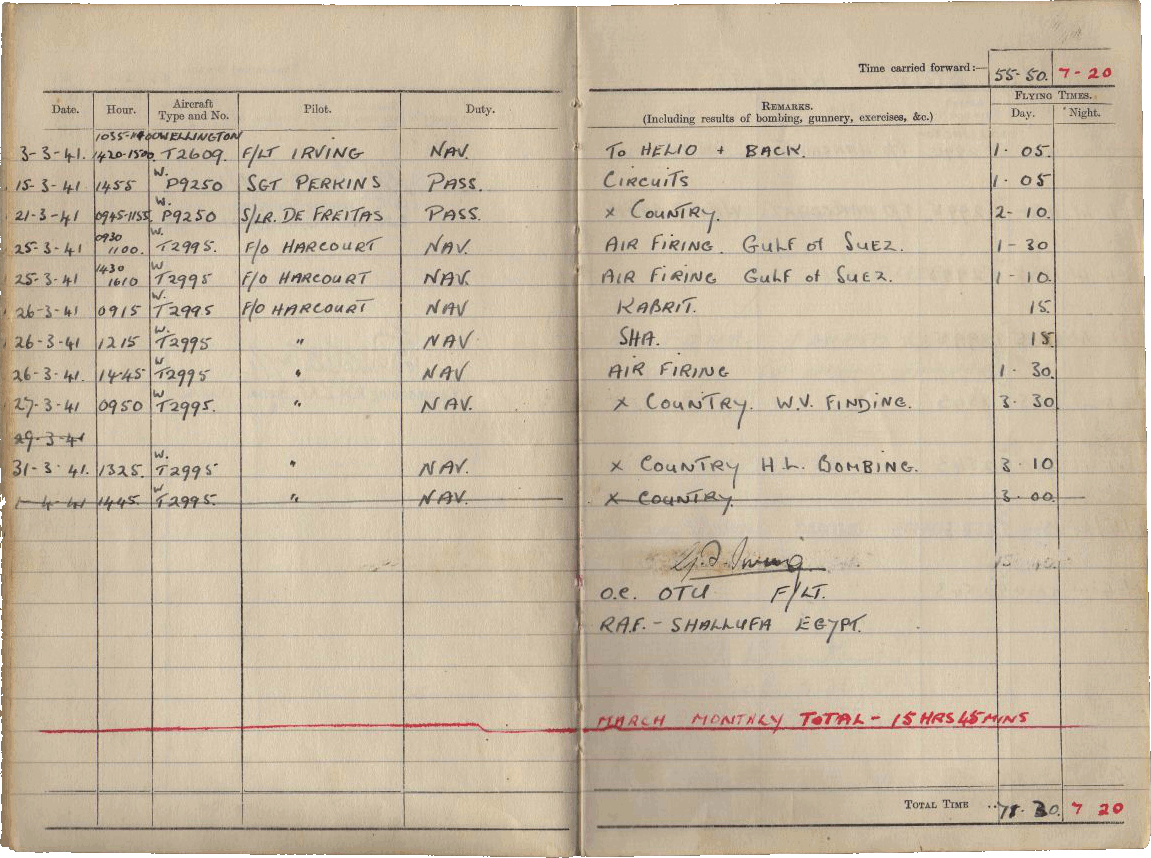 Time carried forward:— 55-50. 7-20
Date. Hour. Aircraft Type and No. Pilot. Duty. REMARKS. (Including results of bombing, gunnery, exercises, &c.) FLYING TIMES. Day. Night.
WELLINGTON
3-3-41. 1420-1500 T2609. F/LT IRVING NAV. TO HELIO + BACK. 1. 05.
15-3-41 1455 W. P9250 SGT PERKINS PASS. CIRCUITS 1. 05
21-3-41 0945-1155 W. P9250 S/LR. DE FREITAS PASS. X COUNTRY. 2- 10.
25-3-41 0930 1100. W. T2995. F/O HARCOURT NAV. AIR FIRING GULF of SUEZ. 1-30
25-3-41 1430 1610 W T2995 F/O HARCOURT NAV. AIR FIRING GULF of SUEZ. 1-10.
26-3-41 0915 W. T2995 F/O HARCOURT NAV KABRIT. 15.
26-3-41 1215 W. T2995 " NAV SHA. 15.
26-3-41. 1445 W T2995 " NAV AIR FIRING 1. 30.
27-3-41 0950 W T2995. " NAV. X COUNTRY. W.V. FINDING. 3. 30
29-3-41
31-3-41. 1325. W. T2995 " NAV. X COUNTRY H.L. BOMBING. 3. 10
1-4-41 1445. W T2995. " NAV. X COUNTRY. 3. 00.
Irving
O.C. OTU F/LT.
RAF. - SHALLUFA EGYPT.
MARCH MONTHLY TOTAL - 15 HRS 45 MINS
TOTAL TIME 30. 7 20